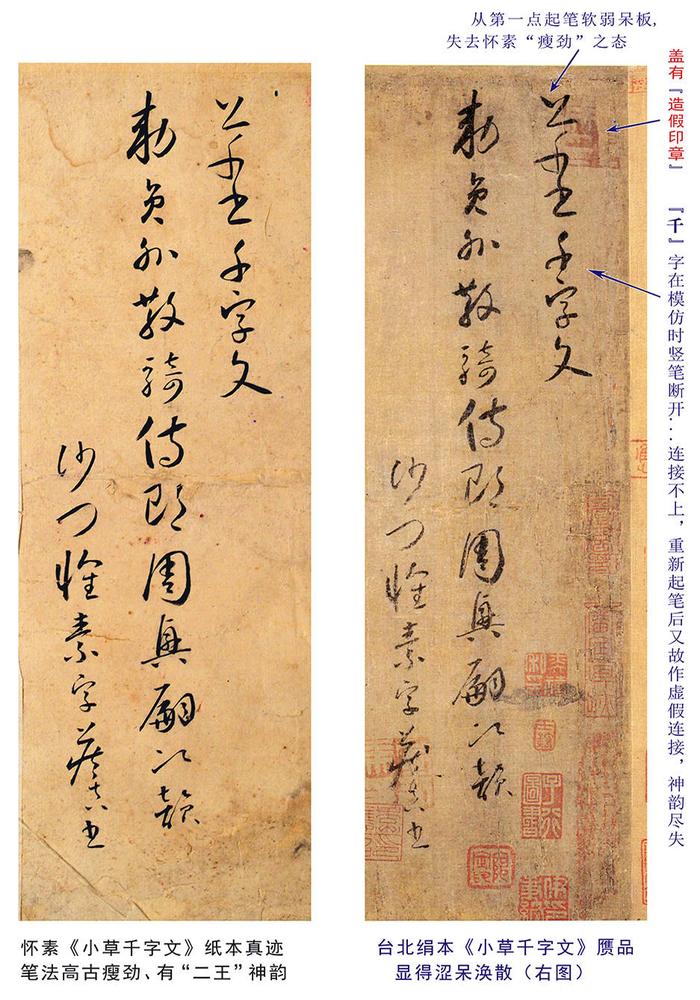 从第一点起笔软弱呆板，
失去怀素“瘦劲”之态
盖有『造假印章』
『千』字在模仿时竖笔断开…连接不上，重新起笔后又故作虚假连接，神韵尽失
草書千字文
敕員外散騎侍郎周興嗣次韻
沙門懷素字藏真書
草書千字文
敕員外散騎侍郎周興嗣次韻
沙門懷素字藏真書
怀素《小草千字文》纸本真迹
笔法高古瘦劲、有“二王”神韵
台北绢本《小草千字文》赝品
显得涩呆涣散（右图）